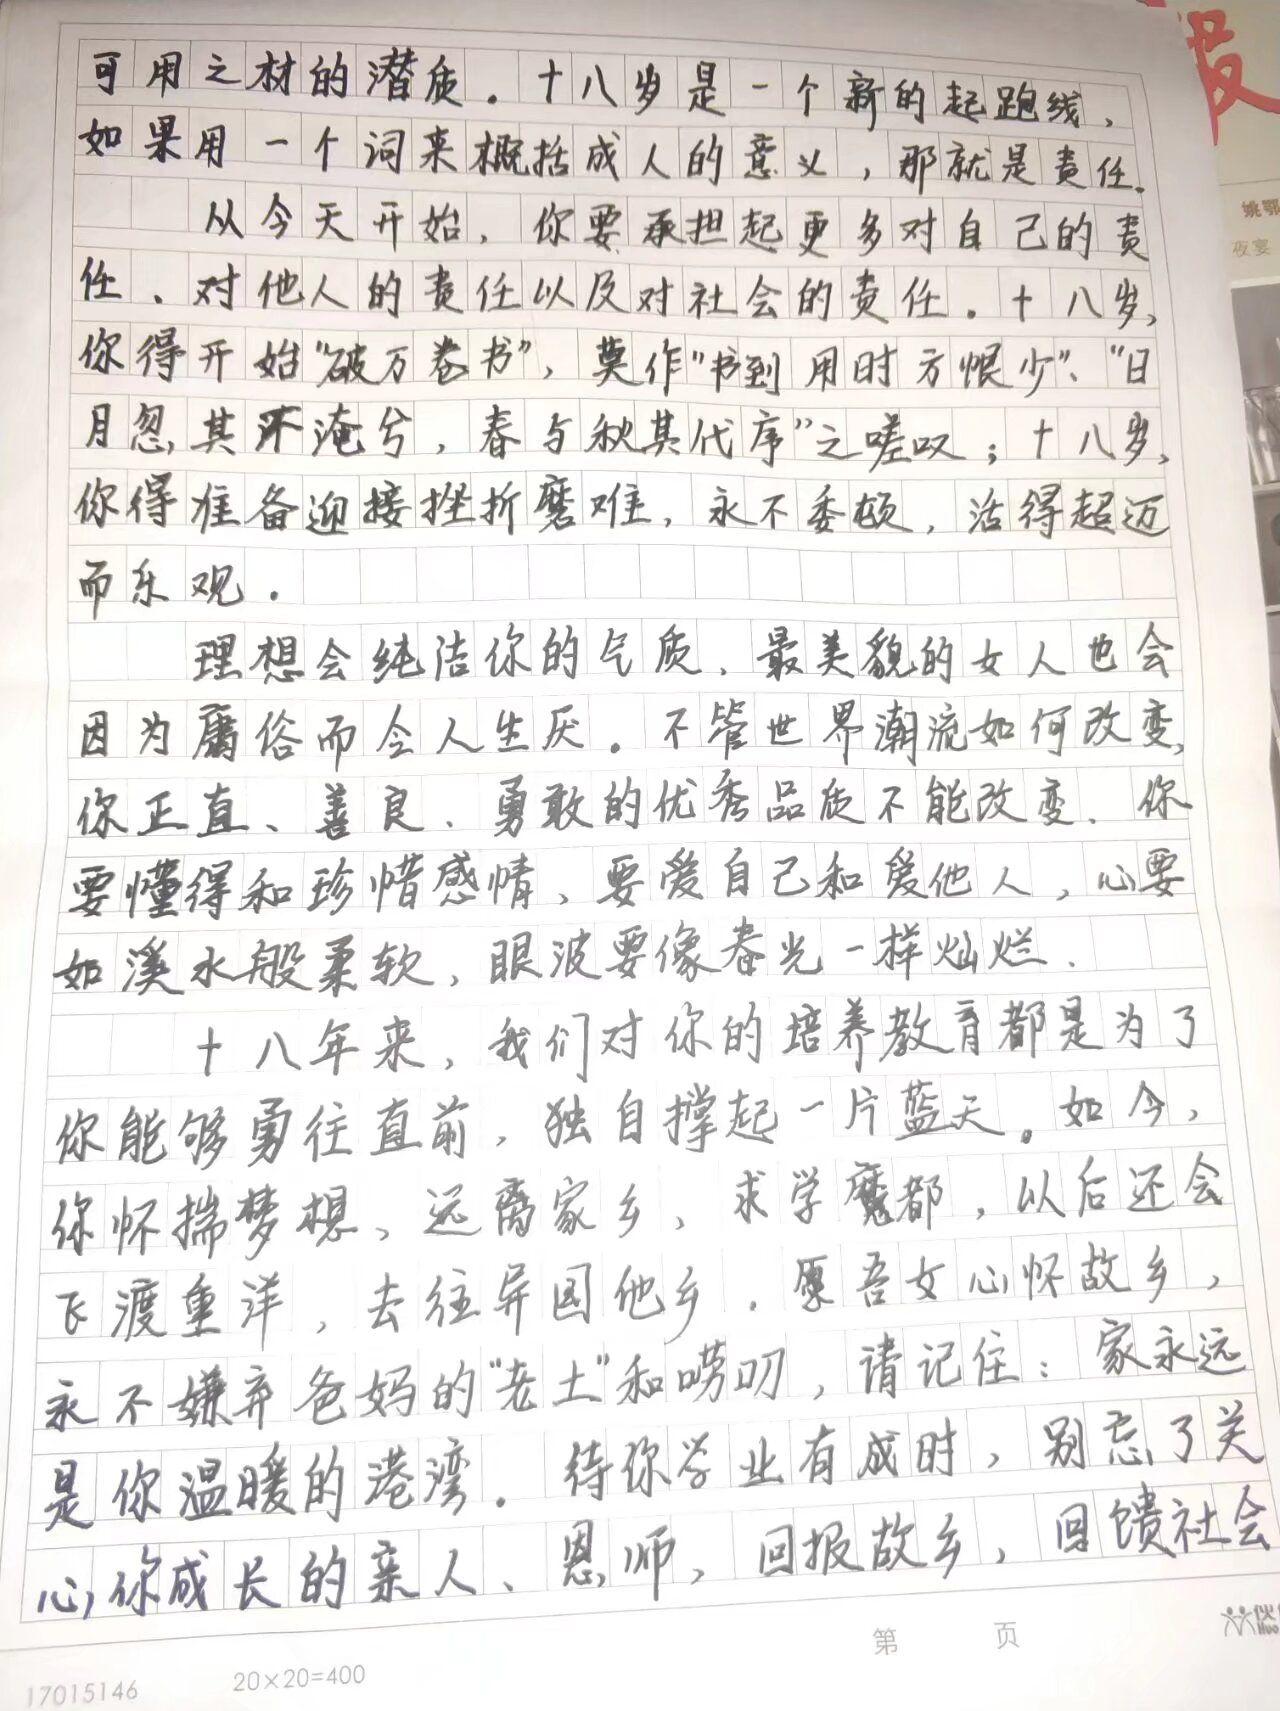 可用之材的潜质．十八岁是一个新的起跑线，
如果用一个词来概括成人的意义，那就是责任．
从今天开始，你要承担起更多对自己的责
任．对他人的责任以及对社会的责任。十八岁，
你得开始"破万卷书"，莫作"书到用时方恨少"、"日
月忽其不淹兮，春与秋其代序"之嗟叹；十八岁，
你得准备迎接挫折磨难，永不委顿，活得超迈
而乐观．
理想会纯洁你的气质，最美貌的女人也会
因为庸俗而令人生厌。不管世界潮流如何改变，
你正直、善良、勇敢的优秀品质不能改变、你
要懂得和珍惜感情、要爱自己和爱他人，心要
如溪水般柔软，眼波要像春光一样灿烂．
十八年来，我们对你的培养教育都是为了
你能够勇往直前，独自撑起一片蓝天。如今，
你怀揣梦想、远离家乡、求学魔都，以后还会
飞渡重洋，去往异国他乡．愿吾女心怀故乡，
永不嫌弃爸妈的"老土"和唠叨，请记住：家永远
是你温暖的港湾．待你学业有成时，别忘了关
心你成长的亲人、恩师，回报故乡，回馈社会
第 页
17015146 20×20=400
姚鄂
夜宴
报